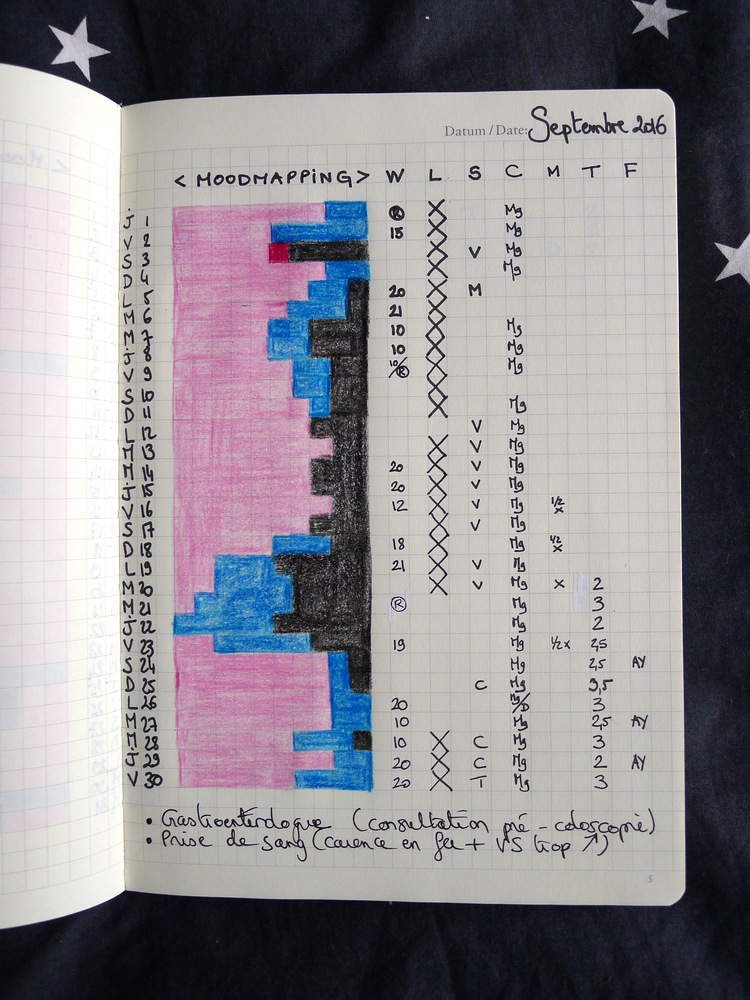 Datum / Date: Septembre 2016
< MOODMAPPING > W L S C M T F
J 1 R X Mg
V 2 15 X Mg
S 3 X V Mg
D 4 X Mg
L 5 20 X M
M 6 21 X
M 7 10 X Mg
J 8 10 X Mg
V 9 10/R X Mg
S 10 X
D 11 X Mg
L 12 V Mg
M 13 X V Mg
M 14 20 X V Mg
J 15 20 X V Mg
V 16 12 X V Mg 1/2 x
S 17 X V Mg
D 18 18 X Mg 1/2 x
L 19 21 X V Mg
M 20 X V Mg x 2
M 21 R Mg 3
J 22 Mg 2
V 23 19 Mg 1/2 x 2,5
S 24 Mg 2,5 AY
D 25 C Mg 3,5
L 26 20 Mg/D 3
M 27 10 Mg 2,5 AY
M 28 10 X C Mg 3
J 29 20 X C Mg 2 AY
V 30 20 X T Mg 3
• Gastroentérologue (consultation pré-coloscopie)
• Prise de sang (carence en fer + VS trop ↗)
5